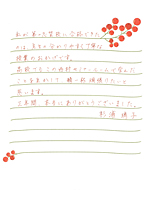 私が第一志望に合格できた
のは、先生の分かりやすく丁寧な
授業のおかげです。
高校でもこの西村ゼミナールで学んだ
ことを生かして、精一杯頑張りたいと
思います。
三年間、本当にありがとうございました。
杉浦 靖子